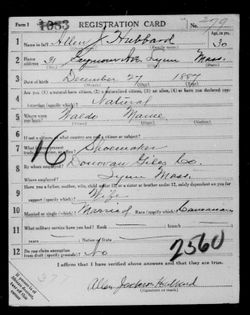 Form 1 1053 REGISTRATION CARD No. 79
1 Name in full Allen J Hubbard Age, in yrs. 30
(Given name) (Family name)
2 Home address 31 Ave. Lynn Mass.
(No.) (Street) (City) (State)
3 Date of birth December 27 1887
(Month) (Day) (Year)
4 Are you (1) a natural-born citizen, (2) a naturalized citizen, (3) an alien, (4) or have you declared your
intention (specify which)? Natural
5 Where were you born? Waldo Maine
(Town) (State) (Nation)
6 If not a citizen, of what country are you a citizen or subject?
7 What is your present trade, occupation, or office? Shoemaker
16
8 By whom employed? Donovan Giles Co.
Where employed? Lynn Mass.
9 Have you a father, mother, wife, child under 12, or a sister or brother under 12, solely dependent on you for
support (specify which)? Wife
10 Married or single (which)? Married Race (specify which)? Caucasian
11 What military service have you had? Rank ; branch
years ; Nation or State
12 Do you claim exemption from draft (specify grounds)? No
2560
I affirm that I have verified above answers and that they are true.
377
Allen Jackson Hubbard
(Signature or mark)